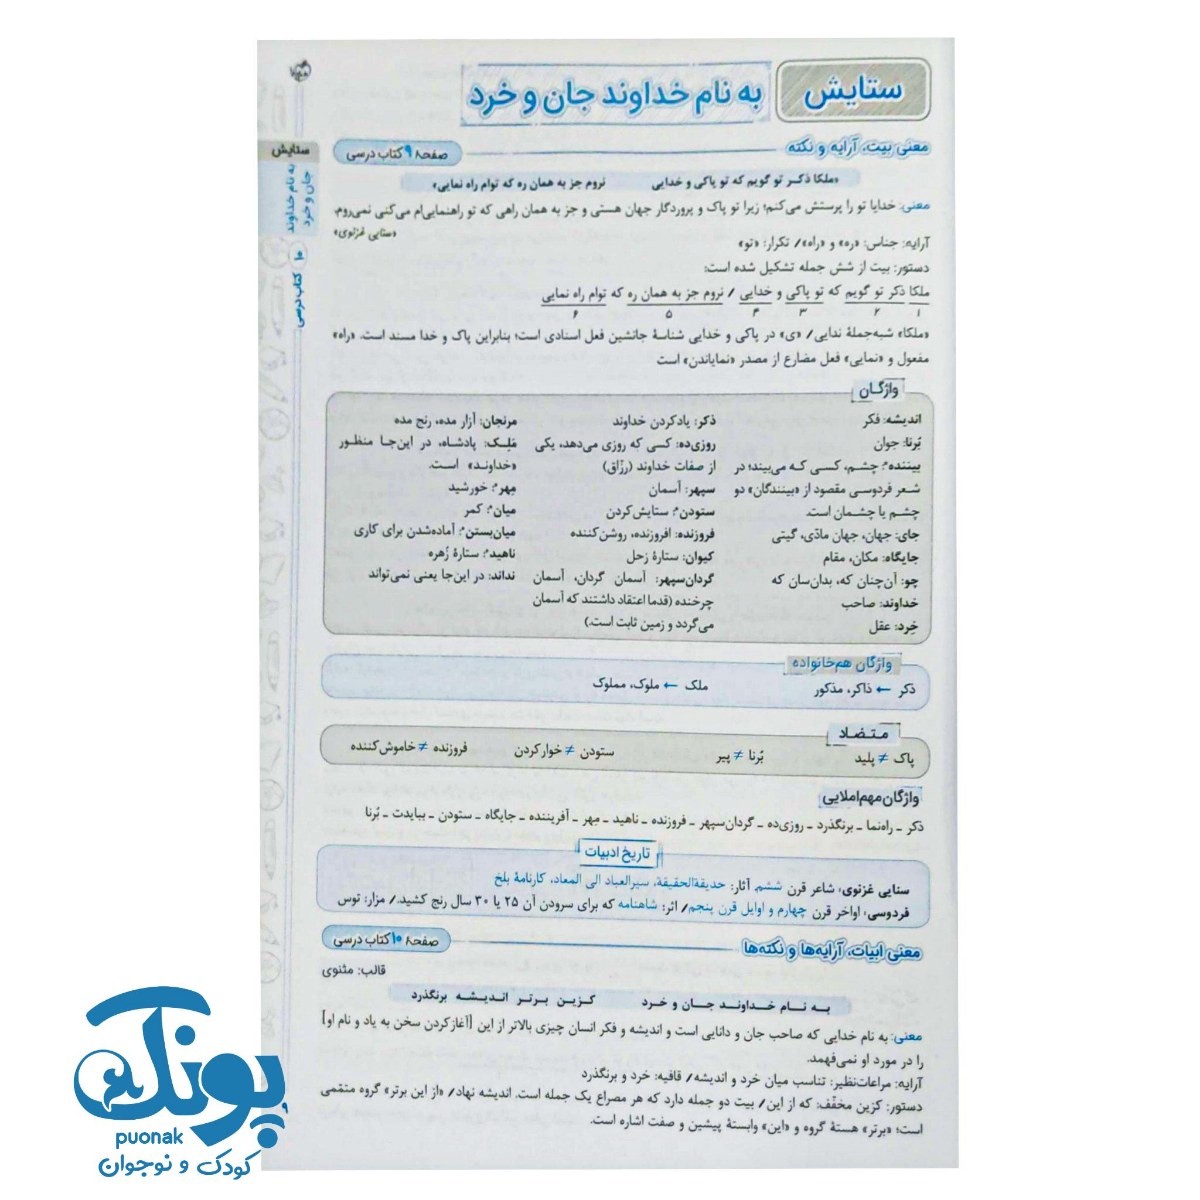 ستایش
به نام خداوند جان و خرد
معنی بیت، آرایه و نکته
صفحهٔ ۹ کتاب درسی
«ملکا ذکر تو گویم که تو پاکی و خدایی نروم جز به همان ره که توام راه نمایی»
معنی: خدایا تو را پرستش می‌کنم؛ زیرا تو پاک و پروردگار جهان هستی و جز به همان راهی که تو راهنمایی‌ام می‌کنی نمی‌روم.
«سنایی غزنوی»
آرایه: جناس: «ره» و «راه»/ تکرار: «تو»
دستور: بیت از شش جمله تشکیل شده است:
ملکا ذکر تو گویم که تو پاکی و خدایی / نروم جز به همان ره که توام راه نمایی
۱ ۲ ۳ ۴ ۵ ۶
«ملکا» شبه‌جملهٔ ندایی/ «ی» در پاکی و خدایی شناسهٔ جانشین فعل اسنادی است؛ بنابراین پاک و خدا مسند است. «راه»
مفعول و «نمایی» فعل مضارع از مصدر «نمایاندن» است
واژگان
اندیشه: فکر
بُرنا: جوان
بیننده*: چشم، کسی که می‌بیند؛ در
شعر فردوسی مقصود از «بینندگان» دو
چشم یا چشمان است.
جای: جهان، جهان مادّی، گیتی
جایگاه: مکان، مقام
چو: آن‌چنان که، بدان‌سان که
خداوند: صاحب
خِرد: عقل
ذکر: یادکردن خداوند
روزی‌ده: کسی که روزی می‌دهد، یکی
از صفات خداوند (رزّاق)
سپهر: آسمان
ستودن*: ستایش‌کردن
فروزنده: افروزنده، روشن‌کننده
کیوان: ستارهٔ زحل
گردان‌سپهر: آسمان گردان، آسمان
چرخنده (قدما اعتقاد داشتند که آسمان
می‌گردد و زمین ثابت است.)
مرنجان: آزار مده، رنج مده
مَلِک: پادشاه، در این‌جا منظور
«خداوند» است.
مِهر*: خورشید
میان*: کمر
میان‌بستن*: آماده‌شدن برای کاری
ناهید*: ستارهٔ زُهره
نداند: در این‌جا یعنی نمی‌تواند
واژگان هم‌خانواده
ذکر ← ذاکر، مذکور ملک ← ملوک، مملوک
متضاد
پاک ≠ پلید بُرنا ≠ پیر ستودن ≠ خوارکردن فروزنده ≠ خاموش‌کننده
واژگان مهم املایی
ذکر ـ راه‌نما ـ برنگذرد ـ روزی‌ده ـ گردان‌سپهر ـ فروزنده ـ ناهید ـ مِهر ـ آفریننده ـ جایگاه ـ ستودن ـ ببایدت ـ بُرنا
تاریخ ادبیات
سنایی غزنوی: شاعر قرن ششم. آثار: حدیقةالحقیقة، سیرالعباد الی المعاد، کارنامهٔ بلخ
فردوسی: اواخر قرن چهارم و اوایل قرن پنجم/ اثر: شاهنامه که برای سرودن آن ۲۵ یا ۳۰ سال رنج کشید./ مزار: توس
معنی ابیات، آرایه‌ها و نکته‌ها
صفحهٔ ۱۰ کتاب درسی
قالب: مثنوی
به نام خداوند جان و خرد کزین برتر اندیشه برنگذرد
معنی: به نام خدایی که صاحب جان و دانایی است و اندیشه و فکر انسان چیزی بالاتر از این [آغازکردن سخن به یاد و نام او]
را در مورد او نمی‌فهمد.
آرایه: مراعات‌نظیر: تناسب میان خرد و اندیشه/ قافیه: خرد و برنگذرد
دستور: کزین مخفّف: که از این/ بیت دو جمله دارد که هر مصراع یک جمله است. اندیشه نهاد/ «از این برتر» گروه متمّمی
است؛ «برتر» هستهٔ گروه و «این» وابستهٔ پیشین و صفت اشاره است.
ستایش
به نام خداوند
جان و خرد
۱۰
کتاب درسی
پونک
puonak
کودک و نوجوان